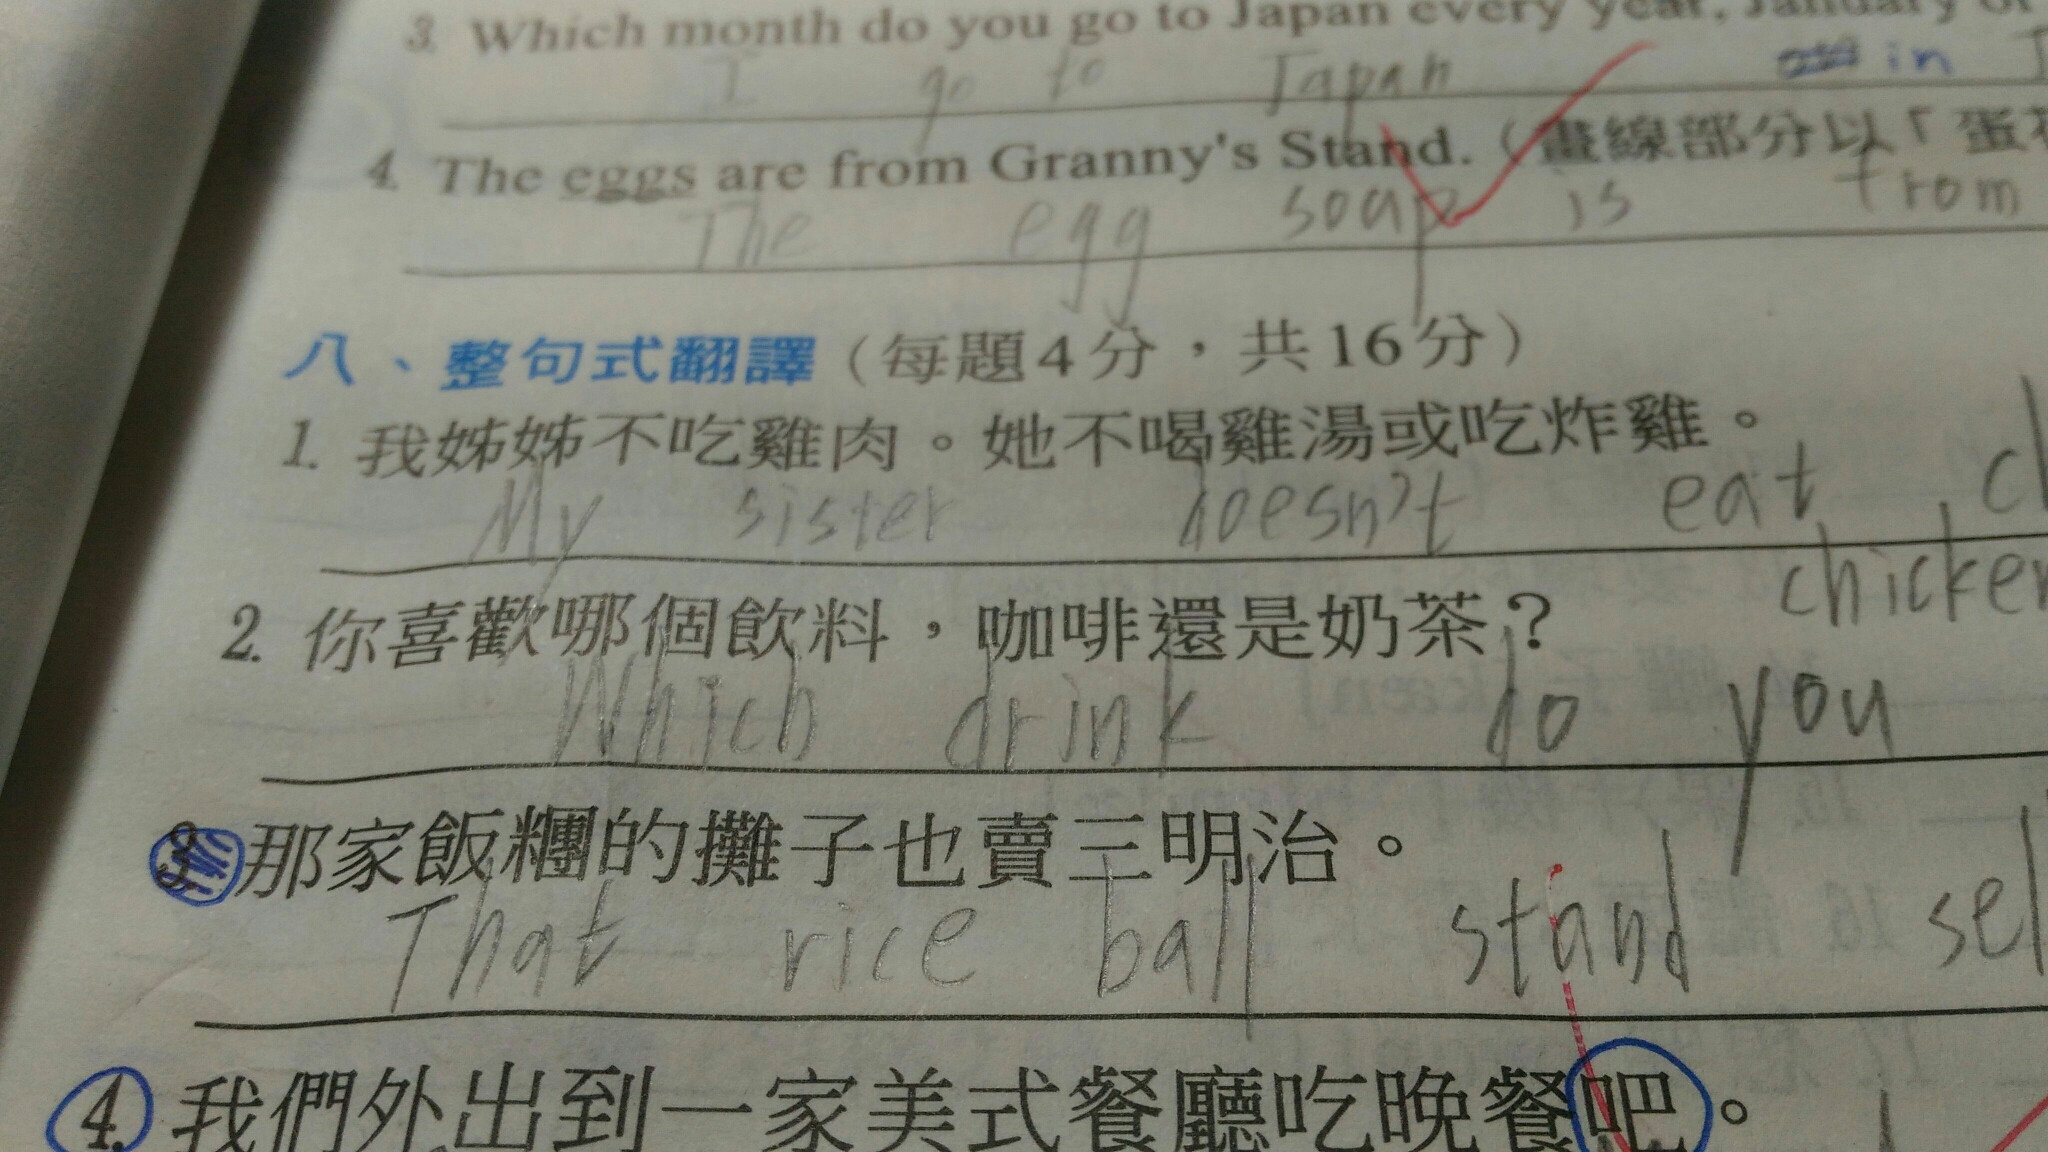 3. Which month do you go to Japan every year, January or
I go to Japan in
4. The eggs are from Granny's Stand.（畫線部分以「蛋花
The egg soup is from
八、整句式翻譯（每題4分，共16分）
1. 我姊姊不吃雞肉。她不喝雞湯或吃炸雞。
My sister doesn't eat ch
chicken
2. 你喜歡哪個飲料，咖啡還是奶茶？
Which drink do you
3. 那家飯糰的攤子也賣三明治。
That rice ball stand sel
4. 我們外出到一家美式餐廳吃晚餐吧。